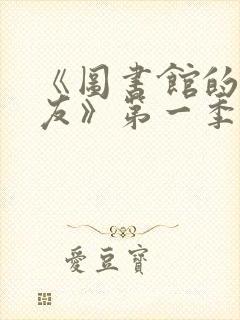 《圖書館的
友》第一季
愛豆寶